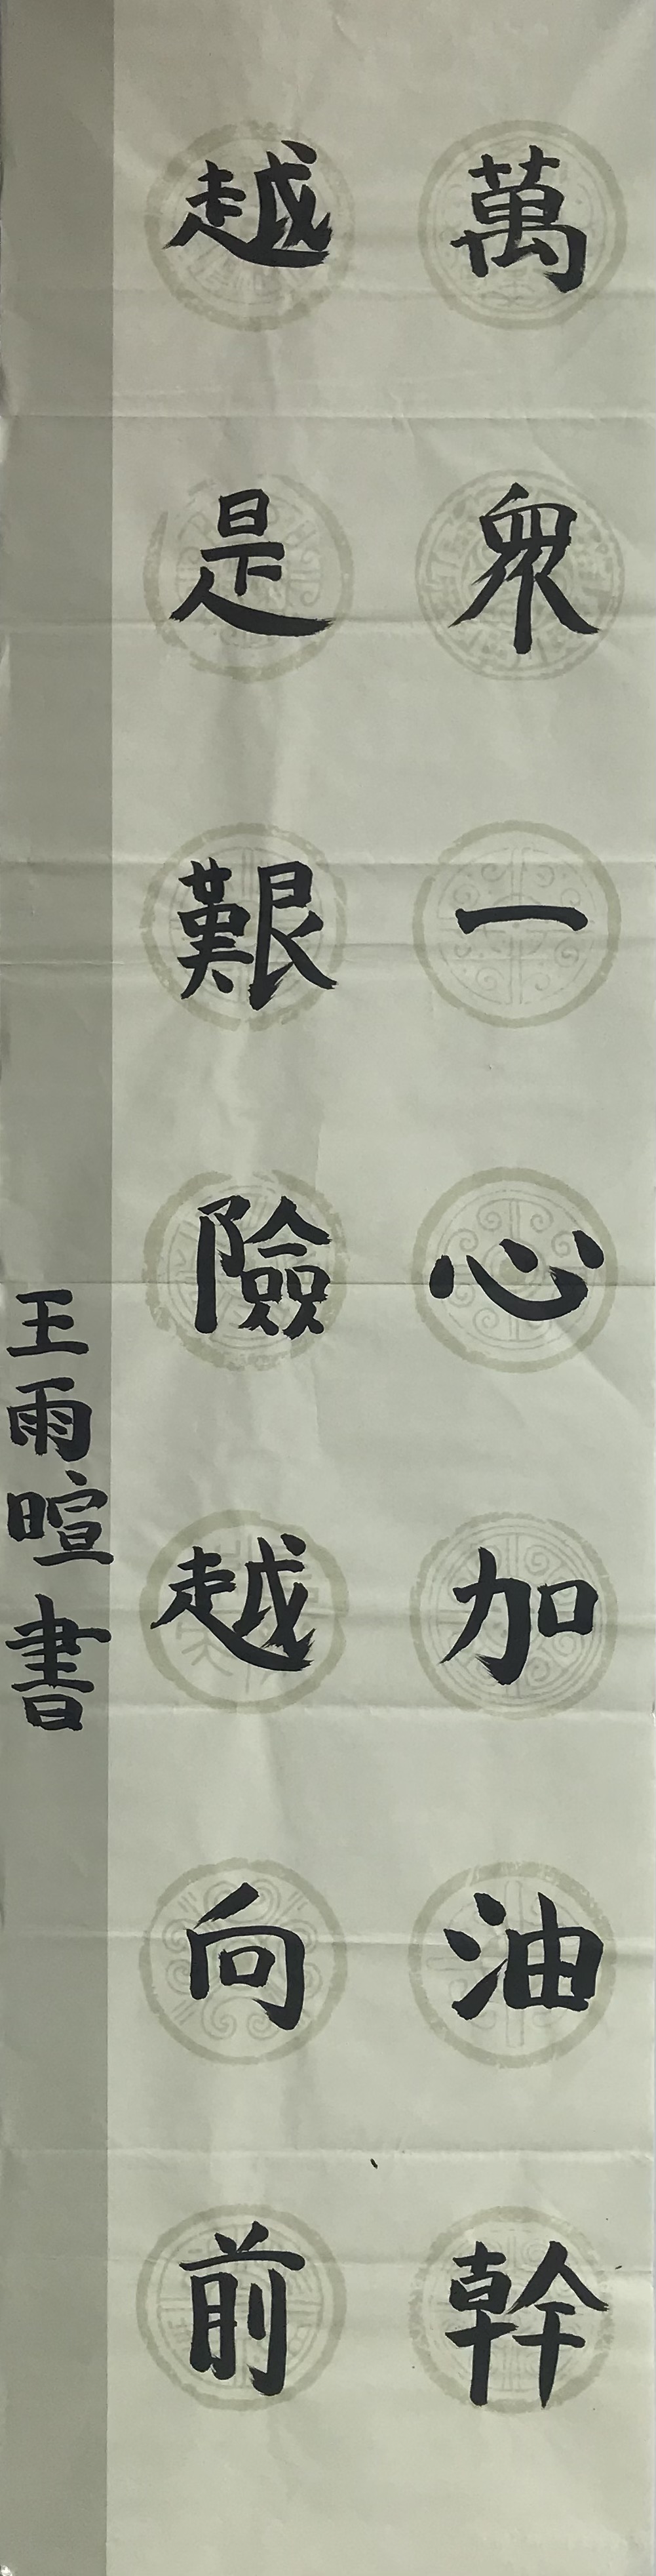 萬眾一心加油幹
越是艱險越向前
王雨暄書